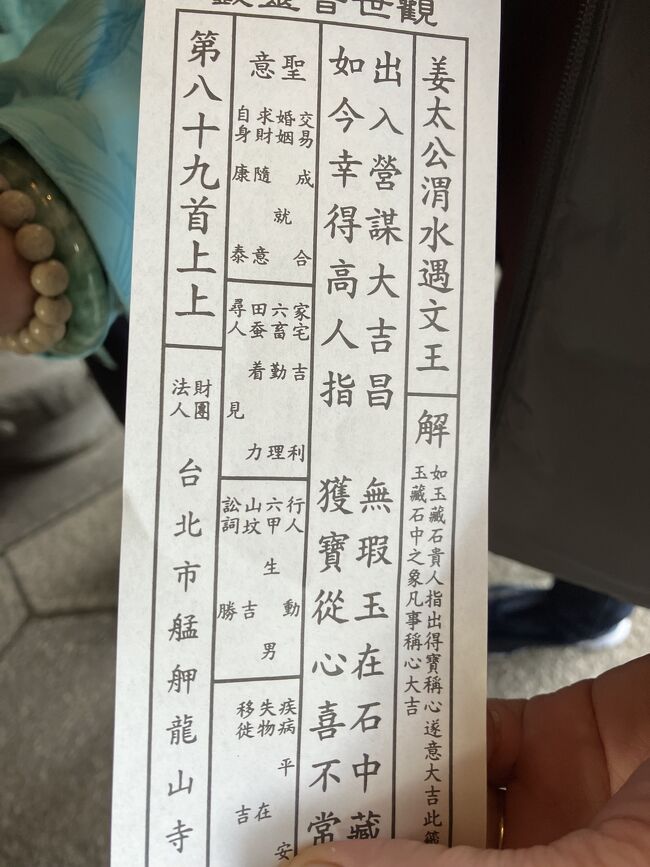 觀世音靈籤
姜太公渭水遇文王
解
如玉藏石貴人指出得寶稱心遂意大吉此籤
玉藏石中之象凡事稱心大吉
出入營謀大吉昌 無瑕玉在石中藏
如今幸得高人指 獲寶從心喜不常
聖意
交易 成 合
婚姻 就
求財 隨 意
自身 康 泰
家宅 吉 利
六畜 勤 理
田蚕 着 力
尋人 見
行人 動
六甲 生 男
山坟 吉
訟詞 勝
疾病 平 安
失物 在
移徙 吉
第八十九首上上
財團
法人
台北市艋舺龍山寺